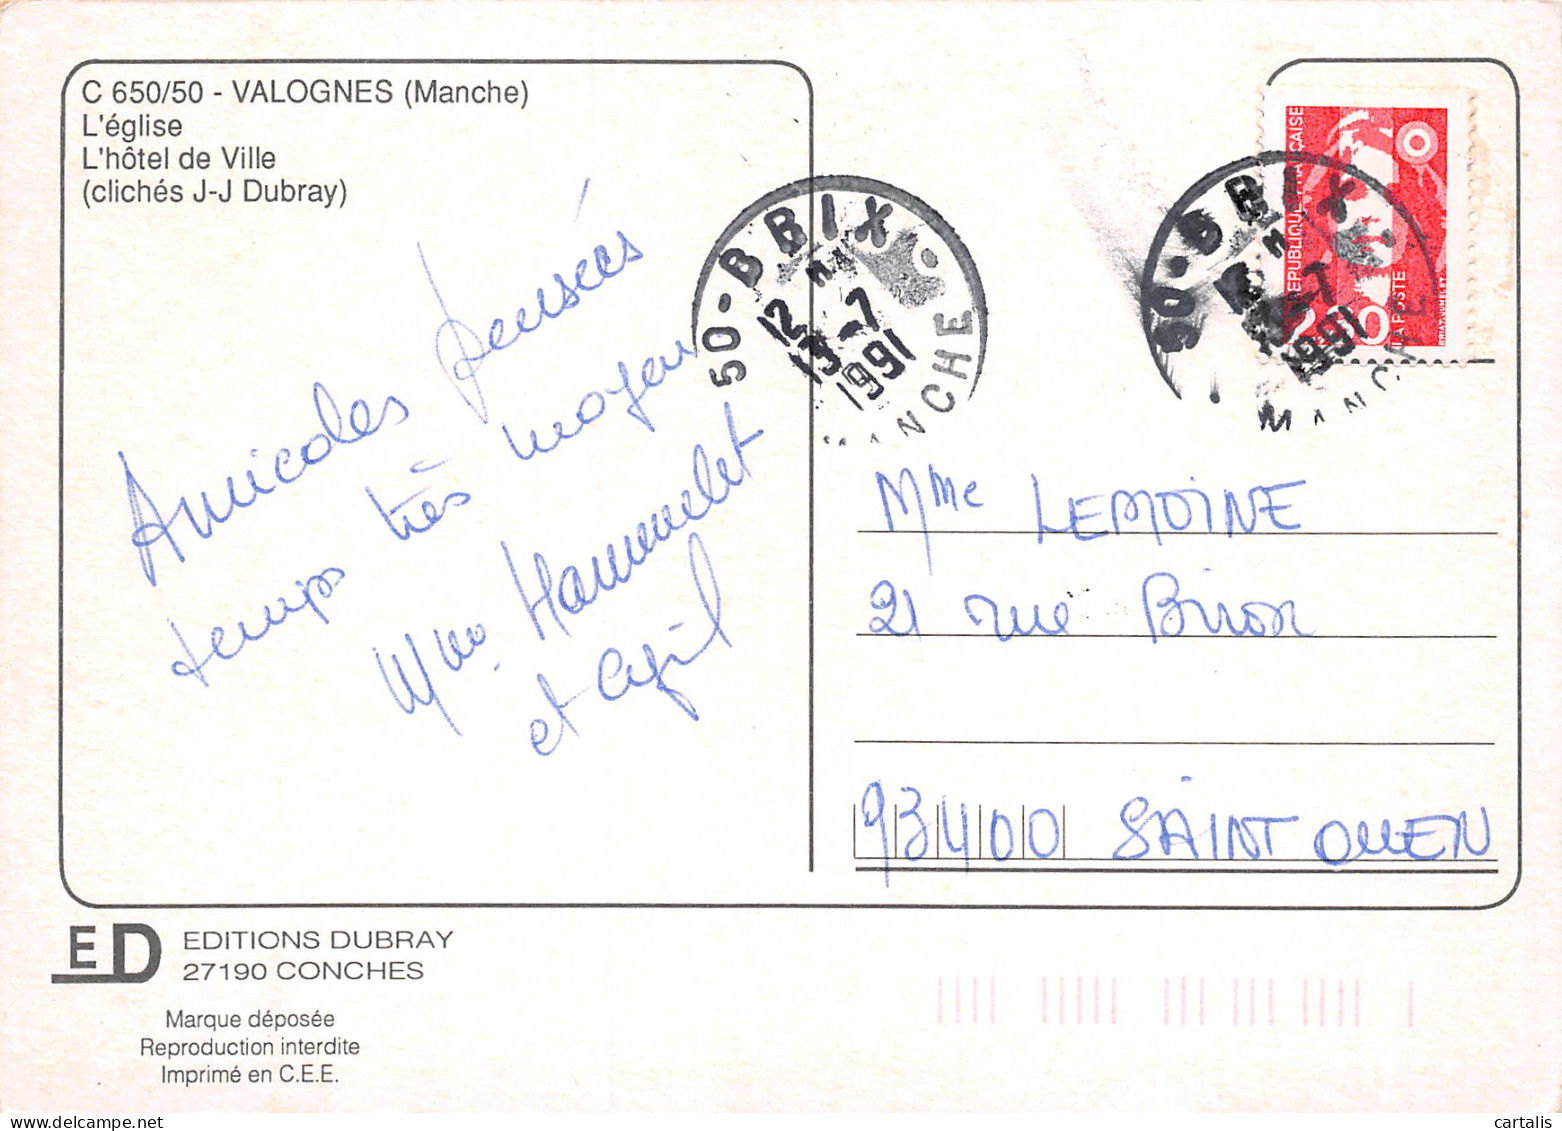 C 650/50 - VALOGNES (Manche)
L'église
L'hôtel de Ville
(clichés J-J Dubray)
Amicales pensées
temps très moyen
Mme Hammelet
et Cyril
50-BRIX
12 H
13-7
1991
MANCHE
50-BRIX
13-7
1991
MANCHE
REPUBLIQUE FRANCAISE
LA POSTE
2,30
Mme LEMOINE
21 rue Biron
93400 SAINT OUEN
ED
EDITIONS DUBRAY
27190 CONCHES
Marque déposée
Reproduction interdite
Imprimé en C.E.E.
cartalis